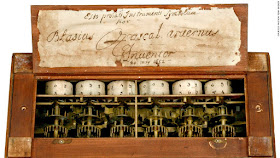 Esto probati Instrumenti Symbolum
hoc
Blasius Pascal arvernus
Inventor
20 may 1652